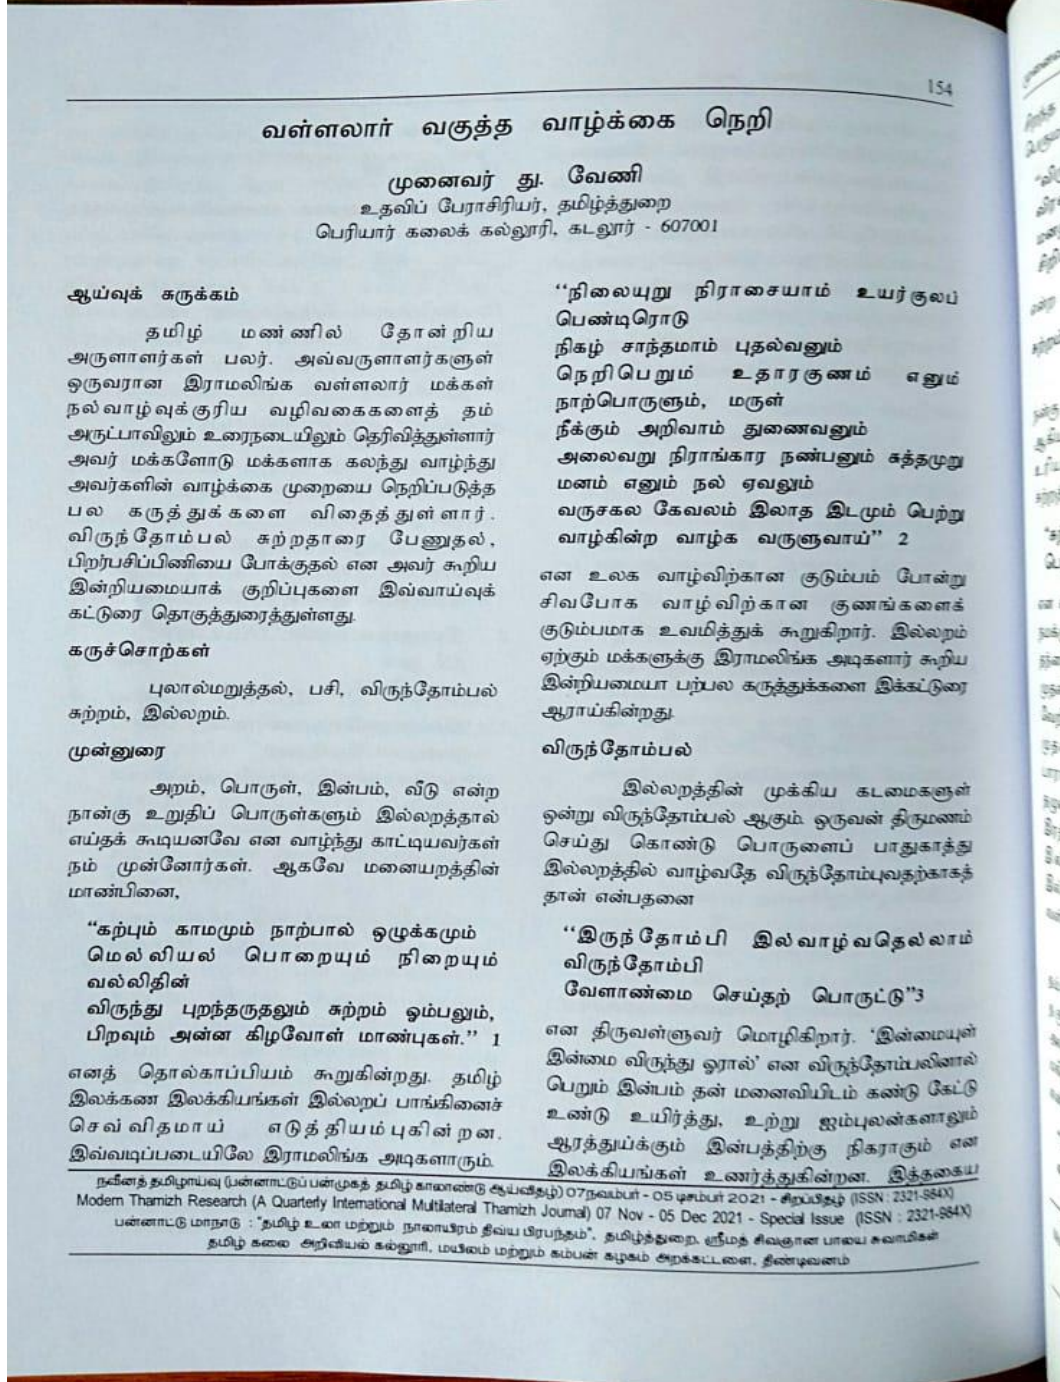 154
வள்ளலார் வகுத்த வாழ்க்கை நெறி
முனைவர் து. வேணி
உதவிப் பேராசிரியர், தமிழ்த்துறை
பெரியார் கலைக் கல்லூரி, கடலூர் - 607001
ஆய்வுக் சுருக்கம்
தமிழ் மண்ணில் தோன்றிய
அருளாளர்கள் பலர். அவ்வருளாளர்களுள்
ஒருவரான இராமலிங்க வள்ளலார் மக்கள்
நல்வாழ்வுக்குரிய வழிவகைகளைத் தம்
அருட்பாவிலும் உரைநடையிலும் தெரிவித்துள்ளார்
அவர் மக்களோடு மக்களாக கலந்து வாழ்ந்து
அவர்களின் வாழ்க்கை முறையை நெறிப்படுத்த
பல கருத்துக்களை விதைத்துள்ளார்.
விருந்தோம்பல் சுற்றதாரை பேணுதல்,
பிறர்பசிப்பிணியை போக்குதல் என அவர் கூறிய
இன்றியமையாக் குறிப்புகளை இவ்வாய்வுக்
கட்டுரை தொகுத்துரைத்துள்ளது.
கருச்சொற்கள்
புலால்மறுத்தல், பசி, விருந்தோம்பல்
சுற்றம், இல்லறம்.
முன்னுரை
அறம், பொருள், இன்பம், வீடு என்ற
நான்கு உறுதிப் பொருள்களும் இல்லறத்தால்
எய்தக் கூடியனவே என வாழ்ந்து காட்டியவர்கள்
நம் முன்னோர்கள். ஆகவே மனையறத்தின்
மாண்பினை,
“கற்பும் காமமும் நாற்பால் ஒழுக்கமும்
மெல்லியல் பொறையும் நிறையும்
வல்லிதின்
விருந்து புறந்தருதலும் சுற்றம் ஓம்பலும்,
பிறவும் அன்ன கிழவோள் மாண்புகள்.” 1
எனத் தொல்காப்பியம் கூறுகின்றது. தமிழ்
இலக்கண இலக்கியங்கள் இல்லறப் பாங்கினைச்
செவ்விதமாய் எடுத்தியம்புகின்றன.
இவ்வடிப்படையிலே இராமலிங்க அடிகளாரும்.
‘‘நிலையுறு நிராசையாம் உயர்குலப்
பெண்டிரொடு
நிகழ் சாந்தமாம் புதல்வனும்
நெறிபெறும் உதாரகுணம் எனும்
நாற்பொருளும், மருள்
நீக்கும் அறிவாம் துணைவனும்
அலைவறு நிராங்கார நண்பனும் சுத்தமுறு
மனம் எனும் நல் ஏவலும்
வருசகல கேவலம் இலாத இடமும் பெற்று
வாழ்கின்ற வாழ்க வருளுவாய்” 2
என உலக வாழ்விற்கான குடும்பம் போன்று
சிவபோக வாழ்விற்கான குணங்களைக்
குடும்பமாக உவமித்துக் கூறுகிறார். இல்லறம்
ஏற்கும் மக்களுக்கு இராமலிங்க அடிகளார் கூறிய
இன்றியமையா பற்பல கருத்துக்களை இக்கட்டுரை
ஆராய்கின்றது.
விருந்தோம்பல்
இல்லறத்தின் முக்கிய கடமைகளுள்
ஒன்று விருந்தோம்பல் ஆகும். ஒருவன் திருமணம்
செய்து கொண்டு பொருளைப் பாதுகாத்து
இல்லறத்தில் வாழ்வதே விருந்தோம்புவதற்காகத்
தான் என்பதனை
‘‘இருந்தோம்பி இல்வாழ்வதெல்லாம்
விருந்தோம்பி
வேளாண்மை செய்தற் பொருட்டு”3
என திருவள்ளுவர் மொழிகிறார். ‘இன்மையுள்
இன்மை விருந்து ஓரால்’ என விருந்தோம்பலினால்
பெறும் இன்பம் தன் மனைவியிடம் கண்டு கேட்டு
உண்டு உயிர்த்து, உற்று ஐம்புலன்களாலும்
ஆரத்துய்க்கும் இன்பத்திற்கு நிகராகும் என
இலக்கியங்கள் உணர்த்துகின்றன. இத்தகைய
நவீனத் தமிழாய்வு (பன்னாட்டுப் பன்முகத் தமிழ் காலாண்டு ஆய்விதழ்) 07நவம்பர் - 05 டிசம்பர் 2021 - சிறப்பிதழ் (ISSN : 2321-984X)
Modern Thamizh Research (A Quarterly International Multilateral Thamizh Journal) 07 Nov - 05 Dec 2021 - Special Issue (ISSN : 2321-984X)
பன்னாட்டு மாநாடு : “தமிழ் உலா மற்றும் நாலாயிரம் திவ்ய பிரபந்தம்”, தமிழ்த்துறை, ஸ்ரீமத் சிவஞான பாலய சுவாமிகள்
தமிழ் கலை அறிவியல் கல்லூரி, மயிலம் மற்றும் கம்பன் கழகம் அறக்கட்டளை, திண்டிவனம்